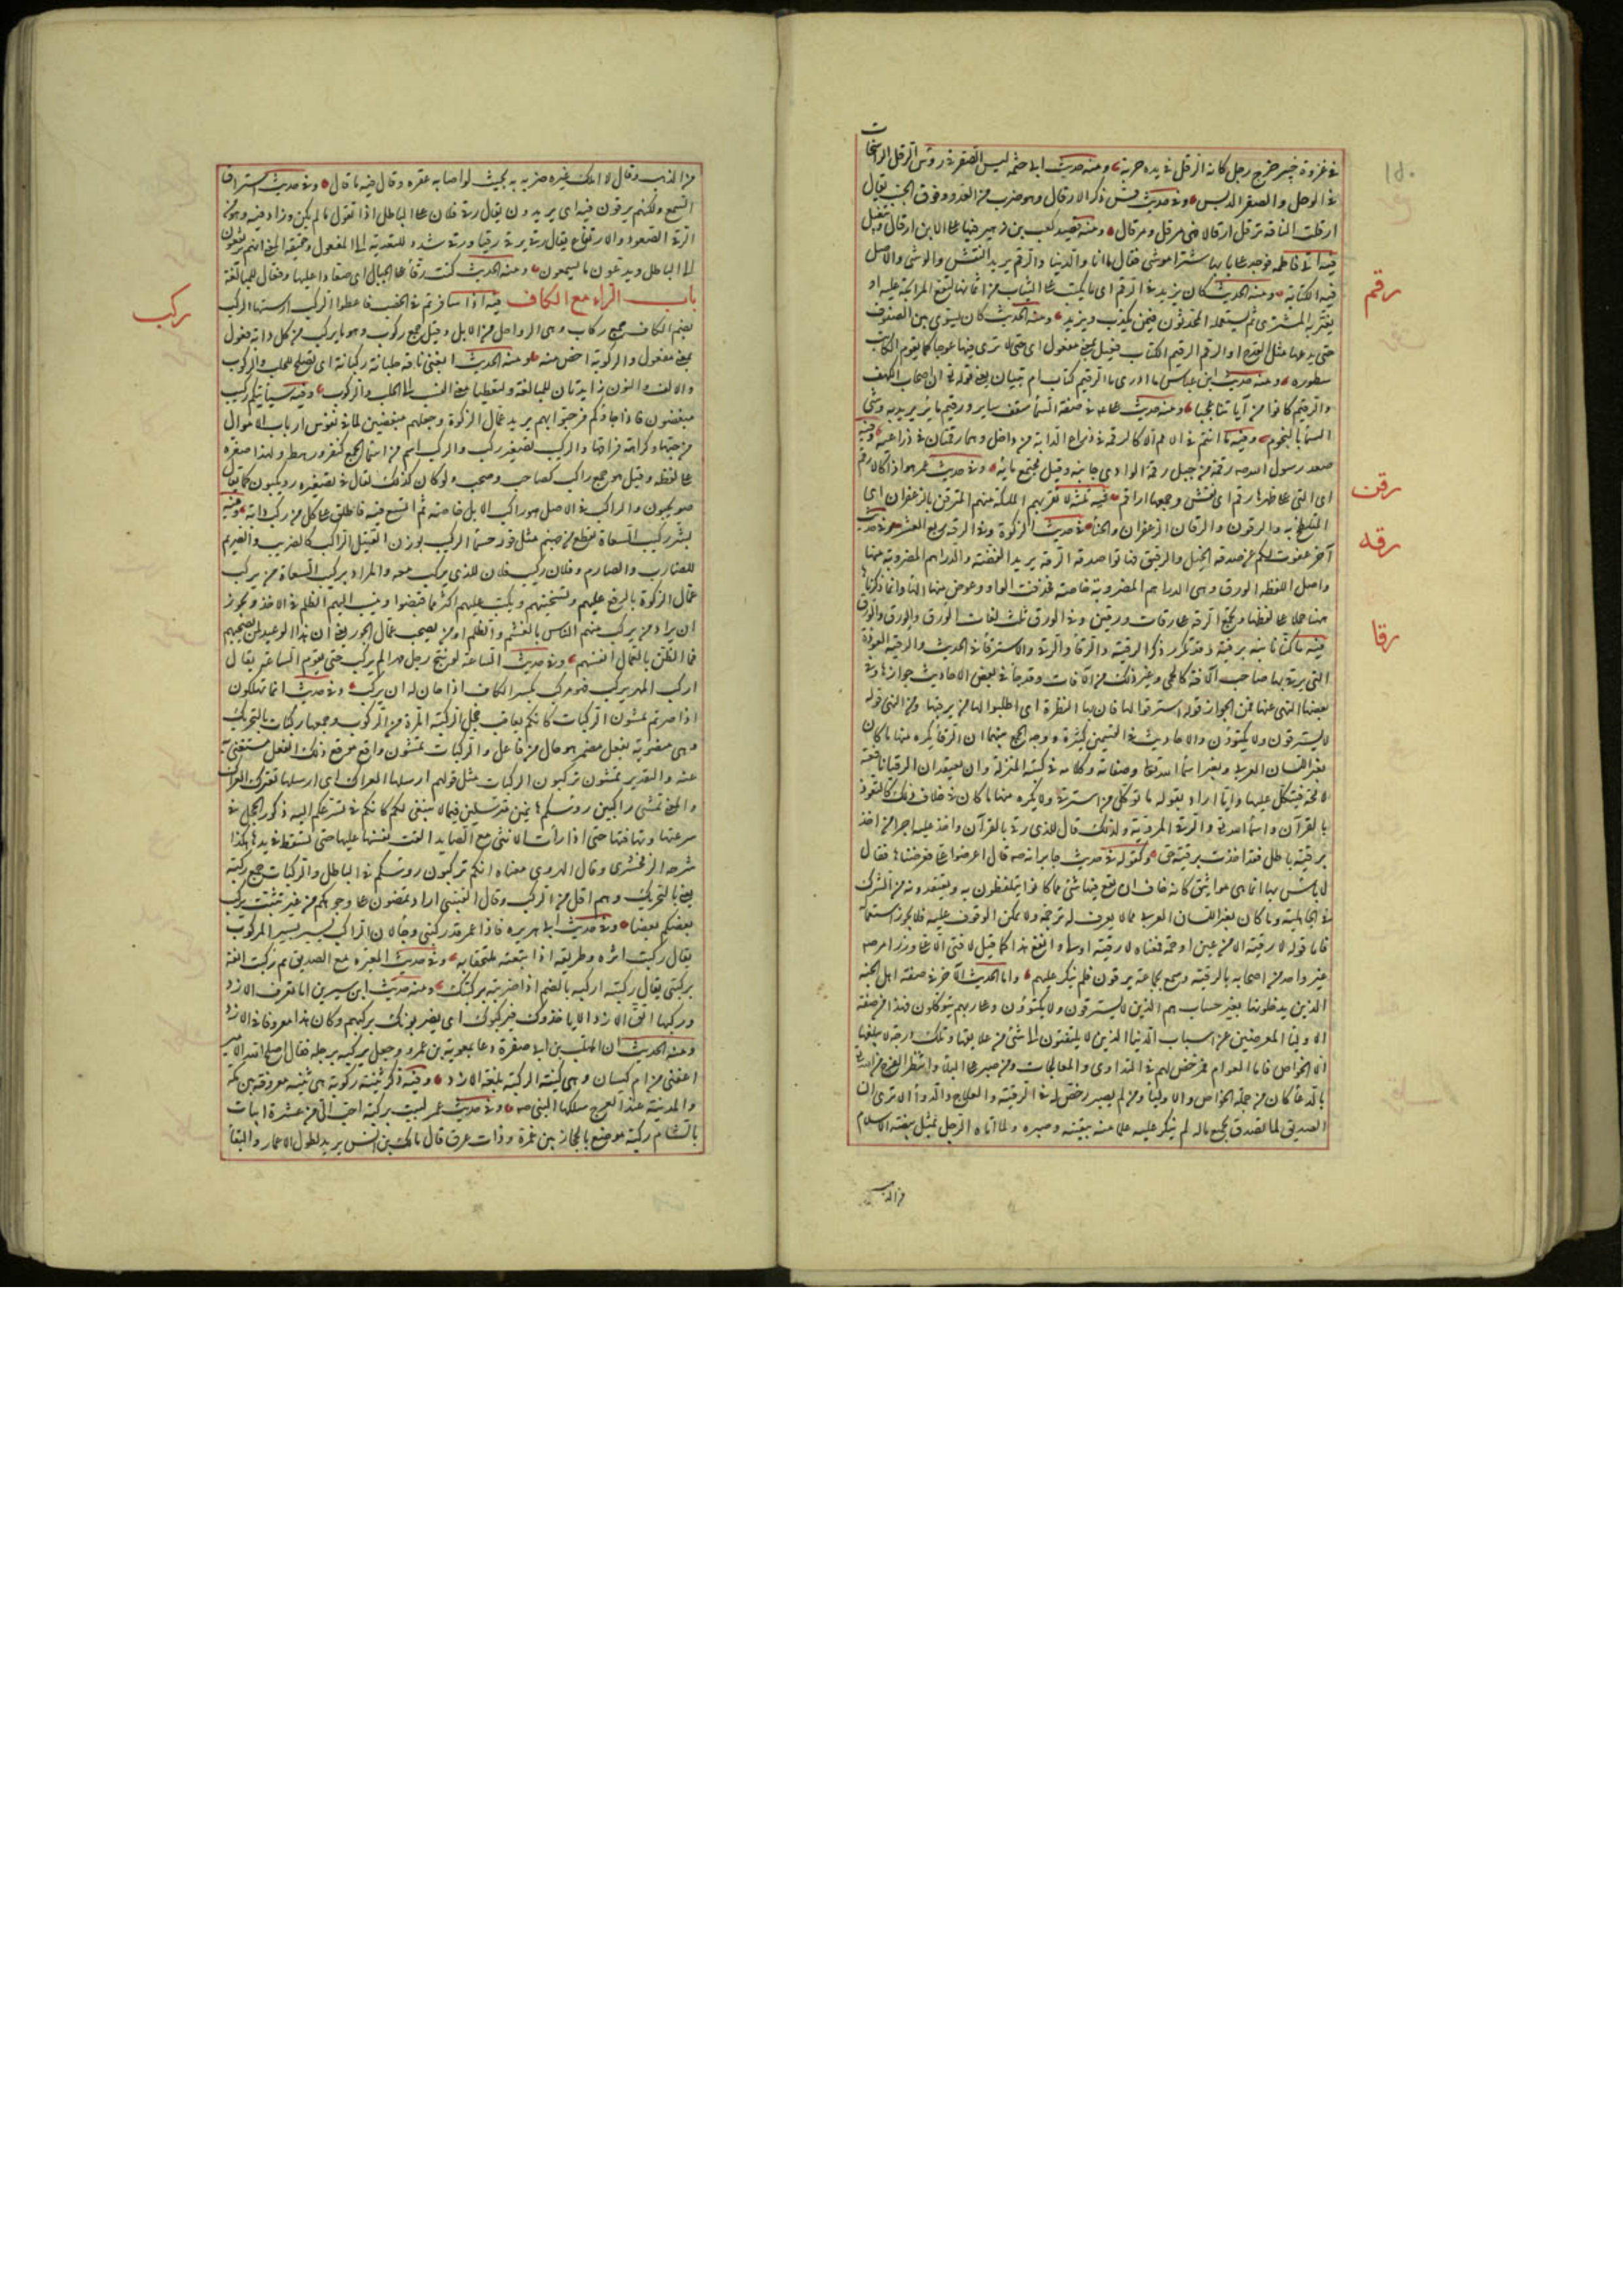 في غزوة خيبر خرج رجل كانه الرقل في يده حربة ومنه حديث ابي حثمة ليس الصقر في رؤس الرقل الراسخات
في الوحل والصقر الدبس وفي حديث قس ذكر الارقال وهو ضرب من العدو فوق الخبب يقال
ارقلت الناقة ترقل ارقالا فهي مرقل ومرقال ومنه قصيد كعب بن زهير فيها على الاين ارقال وتبغيل
فيه اتى فاطمة فوجد على بابها سترا موشى فقال ما انا والدنيا والرقم يريد النقش والوشي والاصل
فيه الكتابة ومنه الحديث كان يزيد في الرقم اي ما يكتب على الثياب من اثمانها لتقع المرابحة عليه او
يغتر به المشتري ثم استعمله المحدثون فيمن يكذب ويزيد ومنه الحديث كان يسوي بين الصفوف
حتى يدعها مثل القدح او الرقيم الرقيم الكتاب فعيل بمعنى مفعول اي حتى لا ترى فيها عوجا كما يقوم الكاتب
سطوره ومنه حديث ابن عباس ما ادري ما الرقيم كتاب ام بنيان يعني قوله تع ان اصحاب الكهف
والرقيم كانوا من آياتنا عجبا ومنه حديث علي في صفة السما سقف ساير ورقيم ماير يريد به وشي
السما بالنجوم وفيه ما انتم في الامم الا كالرقمة في ذراع الدابة من داخل وهما رقمتان في ذراعيها وفيه
صعد رسول الله صه رقمة من جبل رقمة الوادي جانبه وقيل مجتمع مائه وفي حديث عمر هو اذا كالارقم
اي الحية التي على ظهرها رقم اي نقش وجمعها اراقم فيه ثلثة لا تقربهم الملئكة منهم المترقن بالزعفران اي
المتلطخ به والرقون والرقان الزعفران والحنا في حديث الزكوة وفي الرقة ربع العشر وفي حديث
آخر عفوت لكم عن صدقة الخيل والرقيق فهاتوا صدقة الرقة يريد الفضة والدراهم المضروبة منها
واصل اللفظه الورق وهي الدراهم المضروبة خاصة فحذفت الواو وعوض منها الها وانما ذكرناها
ههنا حملا على لفظها وتجمع الرقة على رقات ورقين وفي الورق ثلث لغات الورق والورق والورق
فيه ما كنا نابنه برقية وقد تكرر ذكر الرقية والرقا والرقى والاسترقا في الحديث والرقية العوذة
التي يرقى بها صاحب الآفة كالحمى وغير ذلك من الآفات وقد جا في بعض الاحاديث جوازها وفي
بعضها النهي عنها فمن الجواز قوله استرقوا لها فان بها النظرة اي اطلبوا لها من يرقيها ومن النهي قوله
لا يسترقون ولا يكتوون والاحاديث في القسمين كثيرة ووجه الجمع بينهما ان الرقا يكره منها ما كان
بغير اللسان العربي وبغير اسما الله تعا وصفاته وكلامه في كتبه المنزلة وان يعتقد ان الرقيا نافعة
لا محة فيتكل عليها واياها اراد بقوله ما توكل من استرقى ولا يكره منها ما كان في خلاف ذلك كالتعوذ
بالقرآن واسما الله تع والرقى المروية ولذلك قال للذي رقى بالقرآن واخذ عليه اجرا من اخذ
برقية باطل فقد اخذت برقية حق وكقوله في حديث جابر انه صه قال اعرضوها علي فعرضناها فقال
لا باس بها انما هي مواثيق كانه خاف ان يقع فيها شئ مما كانوا يتلفظون به ويعتقدونه من الشرك
في الجاهلية وما كان بغير اللسان العربي مما لا يعرف له ترجمة ولا يمكن الوقوف عليه فلا يجوز استعماله
فاما قوله لا رقية الا من عين او حمة فمعناه لا رقية اولى وانفع هذا كما قيل لا فتى الا علي وقد امر صه
غير واحد من اصحابه بالرقية وسمع بجماعة يرقون فلم ينكر عليهم واما الحديث الآخر في صفة اهل الجنة
الذين يدخلونها بغير حساب هم الذين لا يسترقون ولا يكتوون وعلى ربهم يتوكلون فهذا من صفة
الاوليا المعرضين عن اسباب الدنيا الذين لا يلتفتون الى شئ من علايقها وتلك درجة لا يبلغها
الا الخواص فاما العوام فمرخص لهم في التداوي والمعالجات ومن صبر على البلا وانتظر الفرج من الله تع
بالدعا كان من جملة الخواص والاوليا ومن لم يصبر رخص له في الرقية والعلاج والدوا الا ترى ان
الصديق لما تصدق بجميع ماله لم ينكر عليه علما منه بيقينه وصبره ولما اتاه الرجل بمثل بيضة الحمام
من الذهب
رقم
رقن
رقه
رقا
١٥٠
من الذهب وقال لا املك غيره ضربه به بحيث لو اصابه عقره وقال فيه ما قال وفي حديث استراق
السمع ولكنهم يرقون فيه اي يزيدون يقال رقى فلان على الباطل اذا تقول ما لم يكن وزاد فيه وهو من
الرقى الصعود والارتفاع يقال رقي يرقى رقيا ورقى شدد للتعدية الى المفعول وحقيقة المعنى انهم يرتفعون
الى الباطل ويدعون ما يسمعون ومنه الحديث كنت رقا على الجبال اي صعادا عليها وفعال للمبالغة
باب الراء مع الكاف فيه اذا سافرتم في الخصب فاعطوا الركب اسنتها الركب
بضم الكاف جمع ركاب وهي الرواحل من الابل وقيل جمع ركوب وهو ما يركب من كل دابة فعول
بمعنى مفعول والركوبة اخص منه ومنه الحديث ابغني ناقة حلبانة ركبانة اي تصلح للحلب والركوب
والالف والنون زايدتان للمبالغة ولتعطيا معنى النسب الى الحلب والركوب وفيه سيأتيكم ركيب
مبغضون فاذا جاؤكم فرحبوا بهم يريد عمال الزكوة وجعلهم مبغضين لما في نفوس ارباب الاموال
من حبها وكراهة فراقها والركيب تصغير ركب والركب اسم من اسما الجمع كنفر ورهط ولهذا صغره
على لفظه وقيل هو جمع راكب كصاحب وصحب ولو كان كذلك لقال في تصغيره رويكبون كما يقال
صويحبون والراكب في الاصل هو راكب الابل خاصة ثم اتسع فيه فاطلق على كل من ركب دابة وفيه
بشر ركيب السعاة بقطع من جهنم مثل قور حسما الركيب بوزن القتيل الراكب كالضريب والصريم
للضارب والصارم وفلان ركيب فلان للذي يركب معه والمراد بركيب السعاة من يركب
عمال الزكوة بالرفع عليهم ويستخينهم ويكتب عليهم اكثر مما قبضوا وينسب اليهم الظلم في الاخذ ويجوز
ان يراد من يركب منهم الناس بالغشم والظلم او من يصحب عمال الجور يعني ان هذا الوعيد لمن يصحبهم
فما الظن بالعمال انفسهم وفي حديث الساعة لو نتج رجل مهرا لم يركب حتى يقوم الساعة يقال
اركب المهر يركب فهو مركب بكسر الكاف اذا حان له ان يركب وفي حديث انما تهلكون
اذا صرتم تمشون الركبات كانكم يعاقيب حجل الركبة المرة من الركوب وجمعها ركبات بالتحريك
وهي منصوبة بفعل مضمر هو حال من فاعل والركبات تمشون واقع موقع ذلك الفعل مستغنى به
عنه والتقدير تمشون تركبون الركبات مثل قولهم ارسلها العراك اي ارسلها تعترك العراك
والمعنى تمشي راكبين رؤسكم هائمين مسترسلين فيما لا ينبغي لكم كانكم في تسرعكم اليه ذكور الحجل في
سرعتها وتهافتها حتى اذا رأت الانثى مع الصايد القت نفسها عليها حتى تسقط في يده هكذا
شرحه الزمخشري وقال الهروي معناه انكم تركبون رؤسكم في الباطل والركبات جمع ركبة
يعني بالتحريك وهم اقل من الركب وقال القتيبي اراد تمضون على وجوهكم من غير تثبت يركب
بعضكم بعضا وفي حديث ابي هريرة فاذا عمر قد ركبني وجا لان الراكب يسير بسير المركوب
يقال ركبت اثره وطريقه اذا تبعته ملتحقا به وفي حديث المغيرة مع الصديق ثم ركبت انفه
بركبتي يقال ركبته اركبه بالضم اذا ضربته بركبتك ومنه حديث ابن سيرين اما تعرف الازد
وركبها اتق الازد لا ياخذوك فيركبوك اي يضربونك بركبهم وكان هذا معروفا في الازد
ومنه الحديث ان المهلب بن ابي صفرة دعا بمعوية بن عمرو وجعل يركبه برجله فقال اصلح الله الامير
اعفني من ام كيسان وهي كنية الركبة بلغة الازد وفيه ذكر ثنية ركوبة هي ثنية معروفة بين مكة
والمدينة عند العرج سلكها النبي صه وفي حديث عمر لبيت بركبة احب الي من عشرة ابيات
بالشام ركبة موضع بالحجاز بين غمرة وذات عرق قال مالك بن انس يريد لطول الاعمار والبقا
ركب